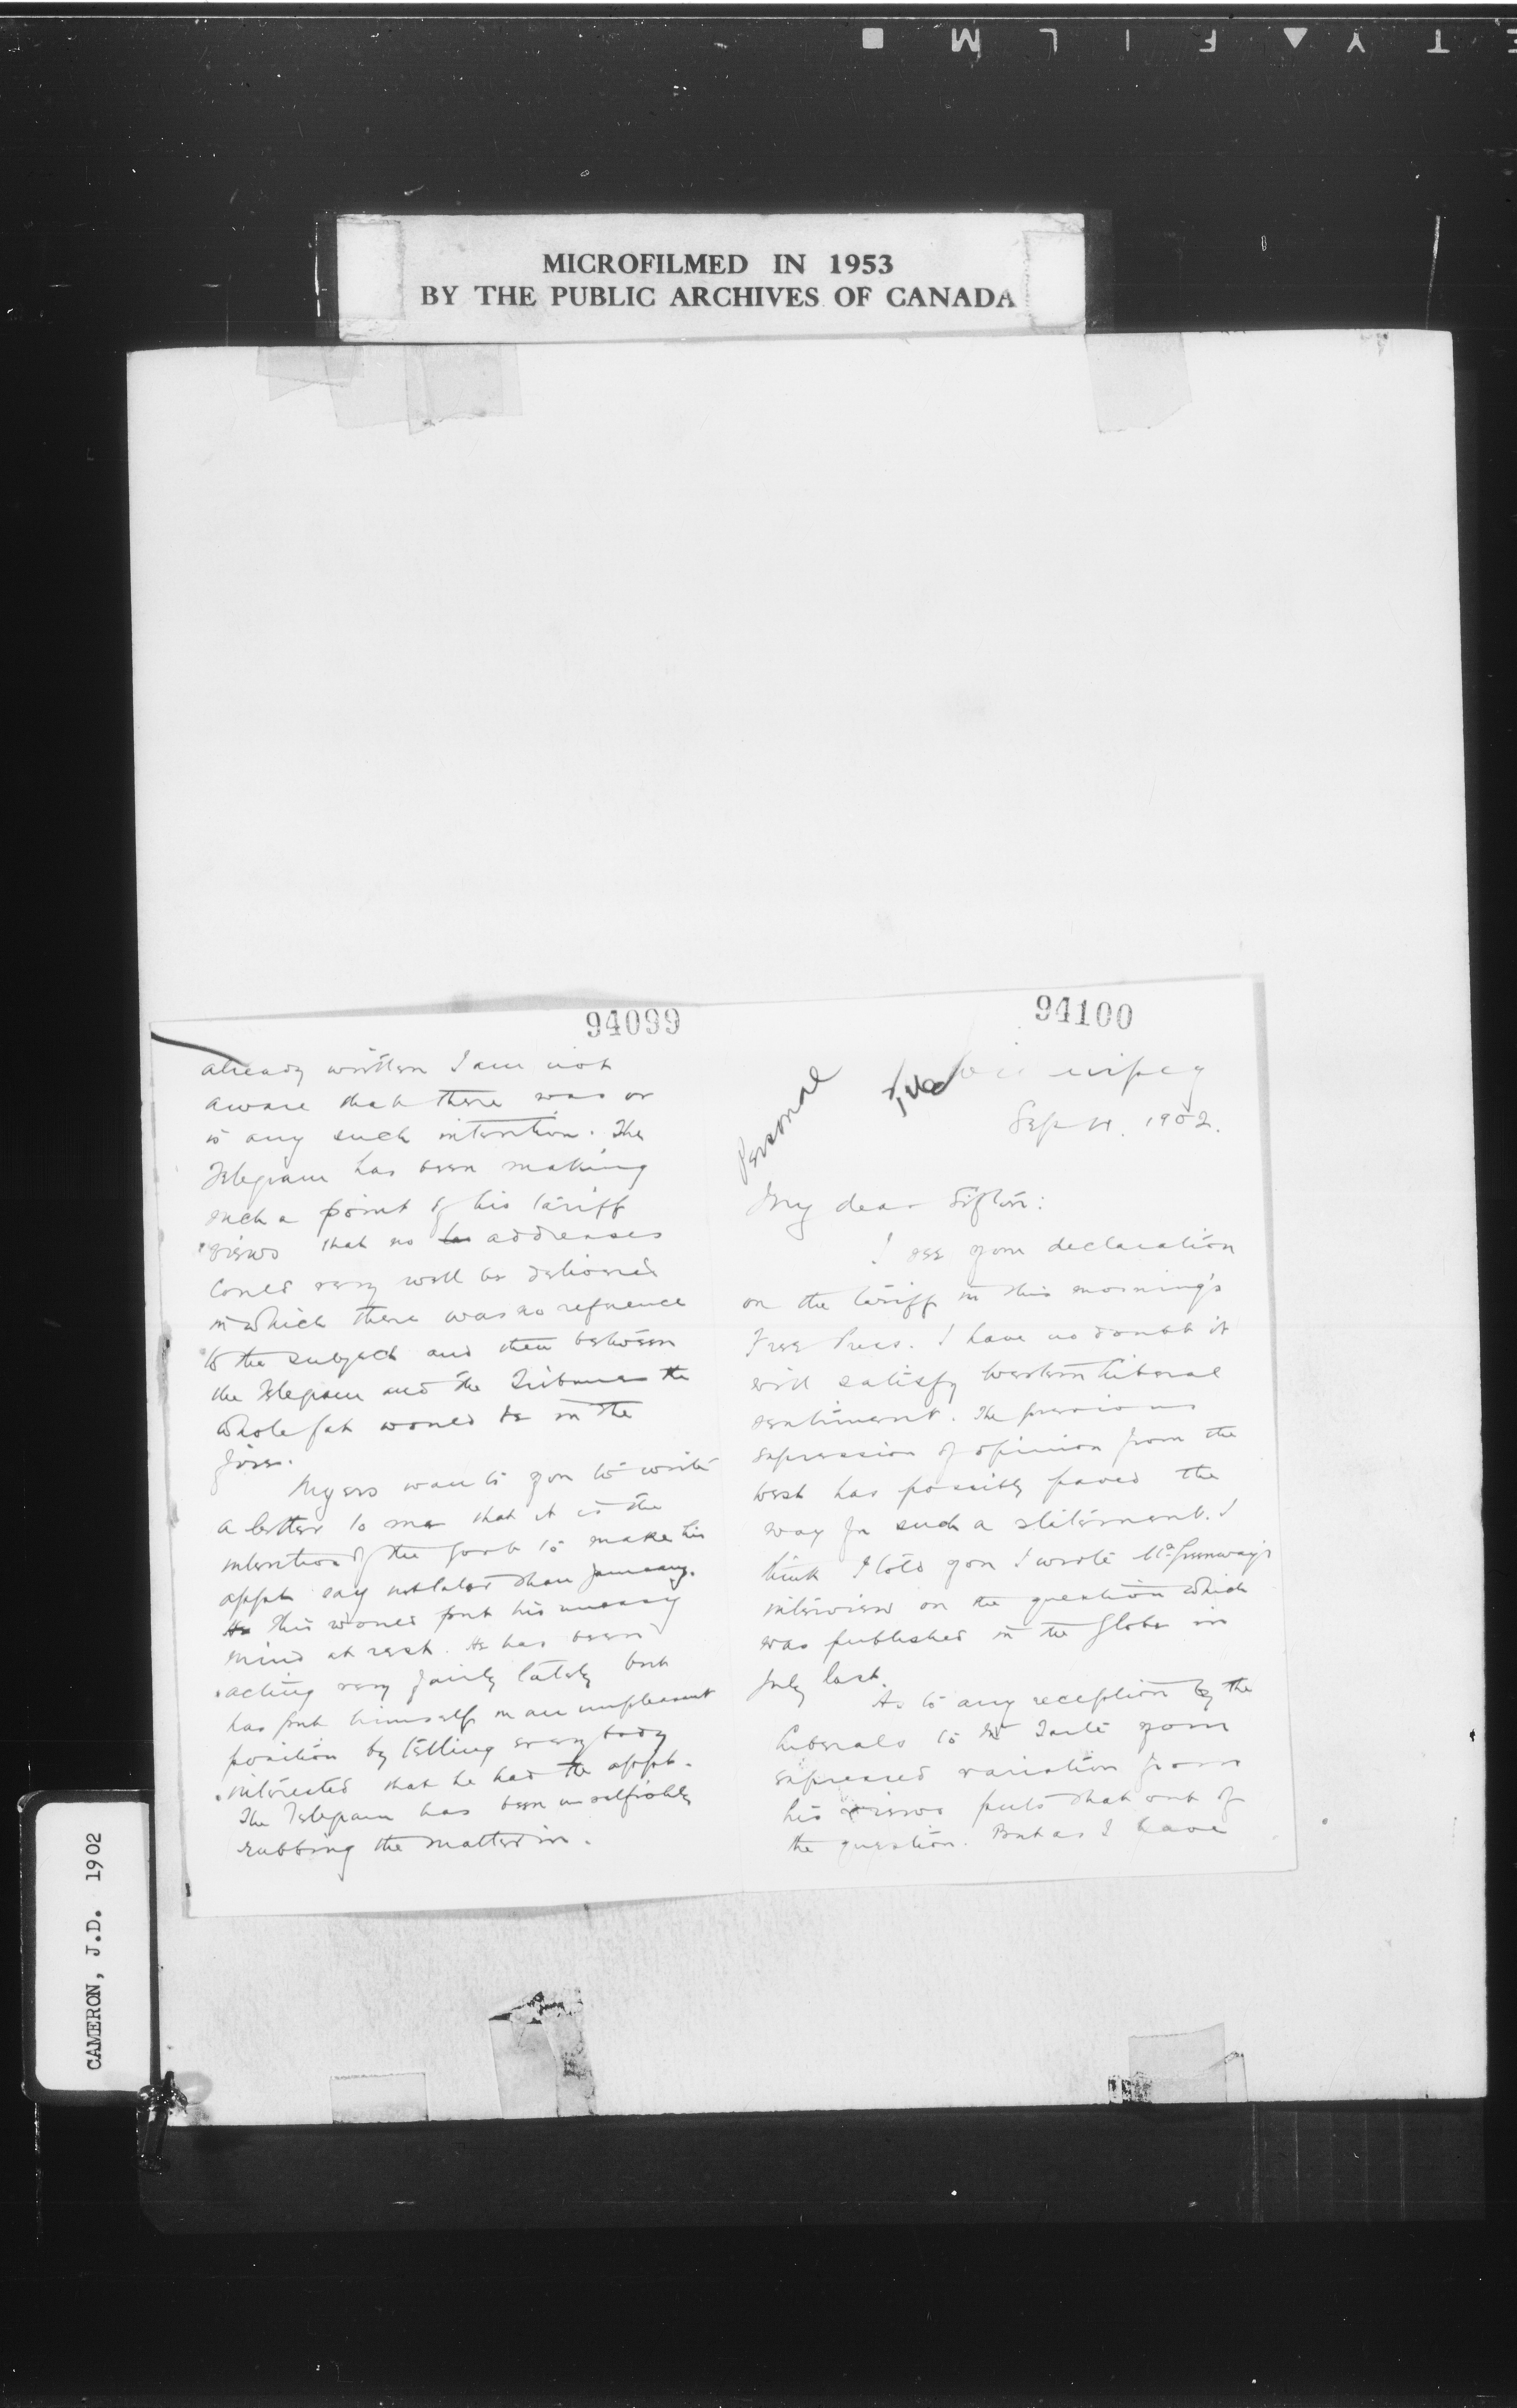 SAFETY FILM
MICROFILMED IN 1953
BY THE PUBLIC ARCHIVES OF CANADA
94099
already written I am not
aware that there was or
is any such intention. The
Telegram has been making
such a point of his tariff
views that no addresses
could very well be delivered
in which there was no reference
to the subject and then between
the Telegram and the Tribune the
whole fat would be in the
fire.
Myers wants you to write
a letter to me that it is the
intention of the Govt to make his
appt say not later than January.
This would put his uneasy
mind at rest. He has been
acting very fairly lately but
has put himself in an unpleasant
position by telling everybody
interested that he had the appt.
The Telegram has been unselfishly
rubbing the matter in.
94100
Personal
Winnipeg
Sep 11. 1902.
My dear Sifton:
I see your declaration
on the tariff in this morning's
Free Press. I have no doubt it
will satisfy Western Liberal
sentiment. The previous
expression of opinion from the
west has possibly paved the
way for such a statement. I
think I told you I wrote Mr Greenway's
interview on the question which
was published in the Globe in
July last.
As to any reception by the
Liberals to Mr Tarte your
expressed variation from
his views puts that out of
the question. But as I have
CAMERON, J.D. 1902